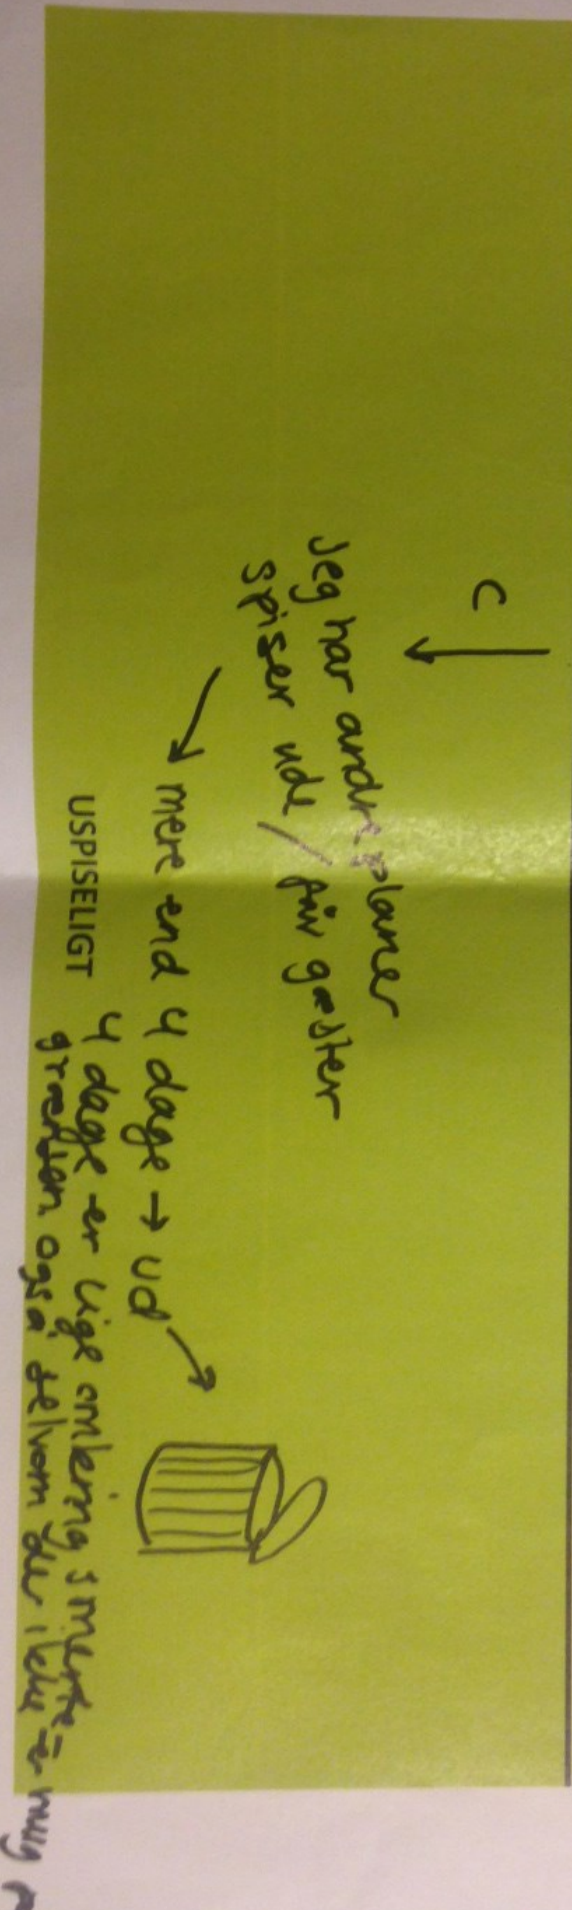 C
Jeg har andre planer
spiser ude / får gæster
mere end 4 dage → ud
USPISELIGT
4 dage er lige omkring smerte-
grænsen, også selvom der ikke er mug